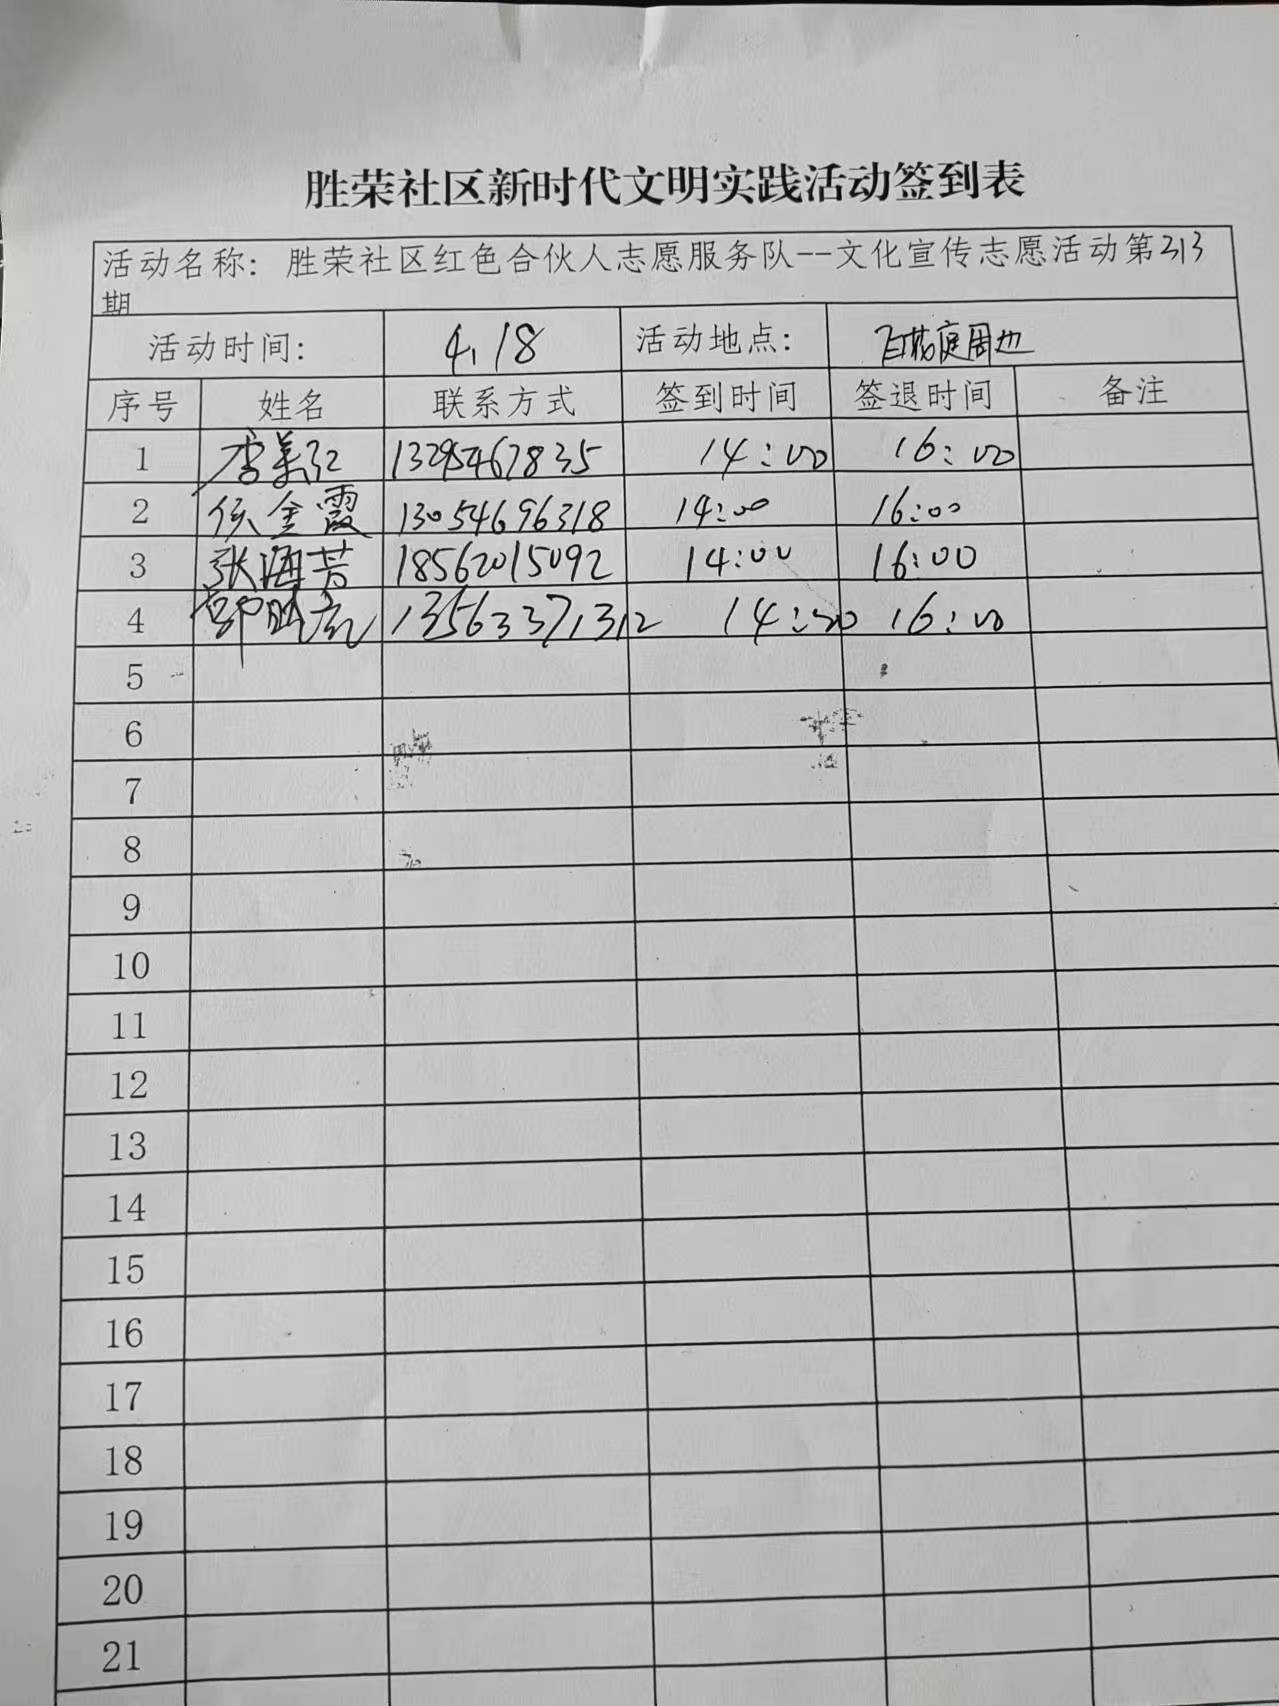 胜荣社区新时代文明实践活动签到表
活动名称：胜荣社区红色合伙人志愿服务队--文化宣传志愿活动第313
期
活动时间： 4.18 活动地点： 百花庭周边
序号 姓名 联系方式 签到时间 签退时间 备注
1 李美红 13295467835 14:00 16:00
2 侯金霞 13054696318 14:00 16:00
3 张海芳 18562015092 14:00 16:00
4 13563371312 16:00
5
6
7
8
9
10
11
12
13
14
15
16
17
18
19
20
21